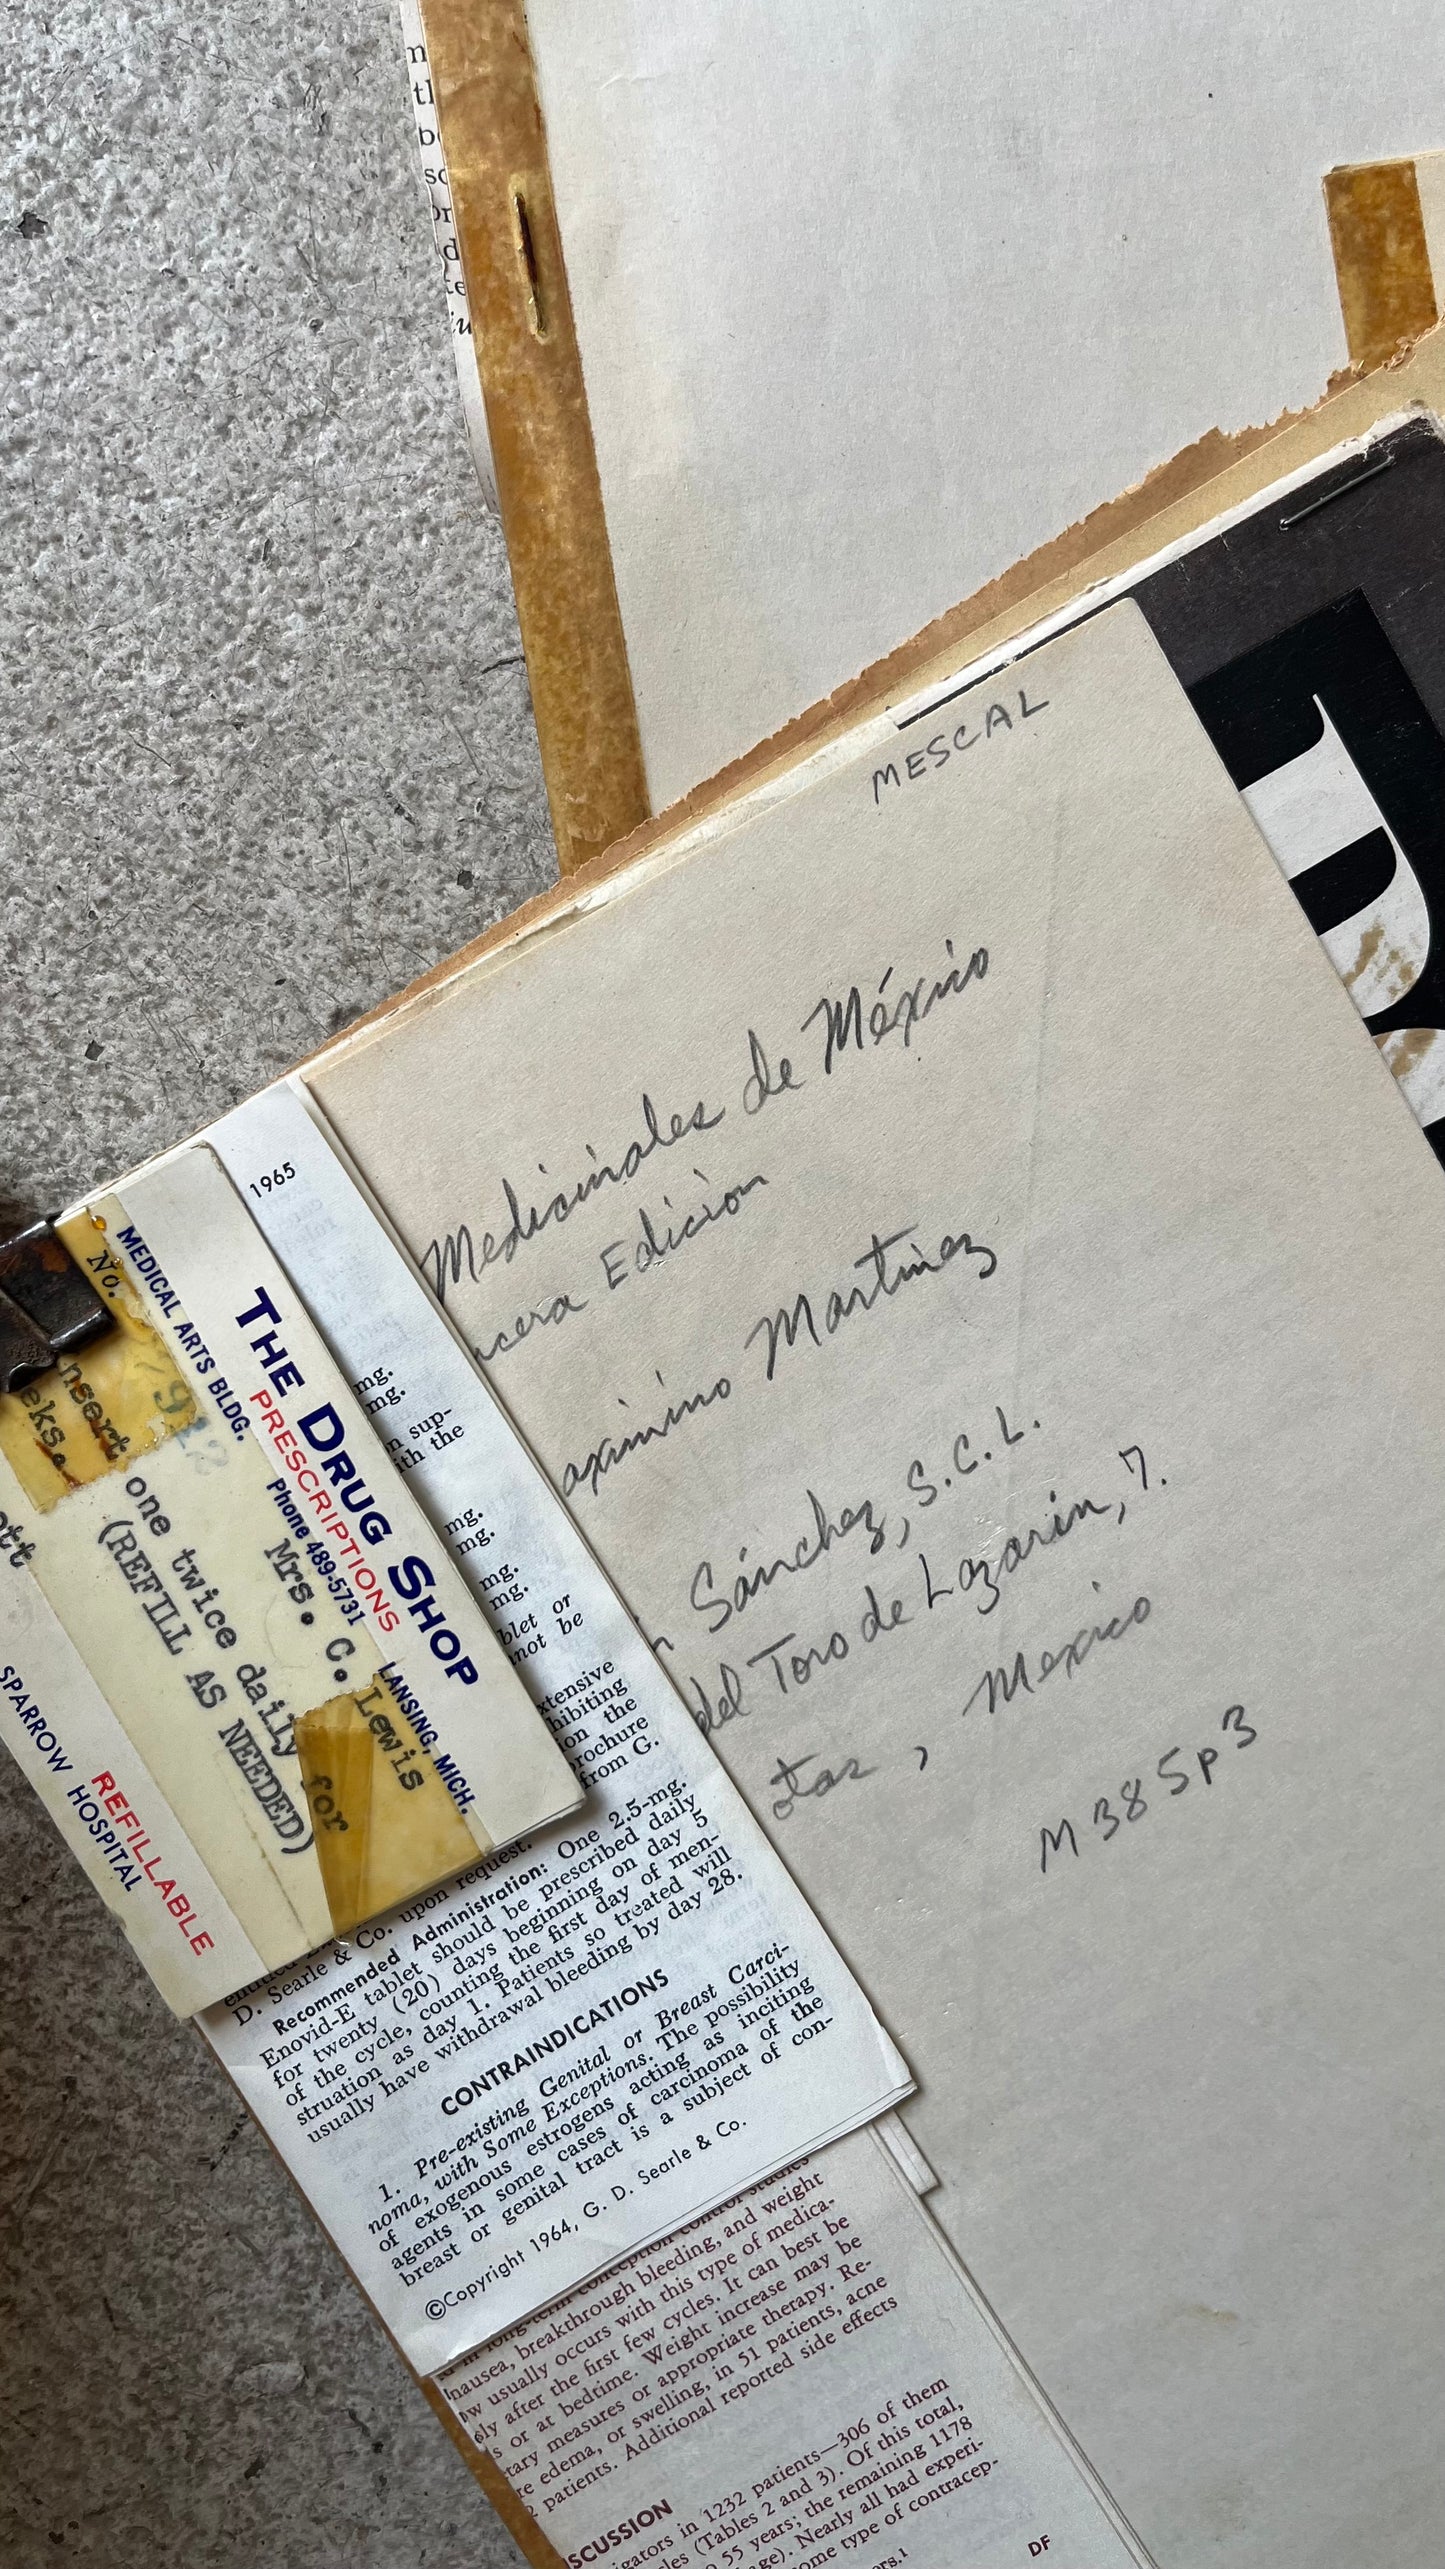 MESCAL
Medicinales de México
Edición
Martinez
Sánchez, S.C.L.
del Toro de Lazarin, 7.
, Mexico
M385p3
1965
THE DRUG SHOP
PRESCRIPTIONS
MEDICAL ARTS BLDG.
Phone 489-5731
LANSING, MICH.
No.
Mrs. C. Lewis
one twice daily for
(REFILL AS NEEDED)
REFILLABLE
SPARROW HOSPITAL
mg.
mg.
sup-
with the
mg.
mg.
mg.
mg.
or
be
the
from G.
D. Searle & Co. upon request.
Recommended Administration: One 2.5-mg.
Enovid-E tablet should be prescribed daily
for twenty (20) days beginning on day 5
of the cycle, counting the first day of men-
struation as day 1. Patients so treated will
usually have withdrawal bleeding by day 28.
CONTRAINDICATIONS
1. Pre-existing Genital or Breast Carci-
noma, with Some Exceptions. The possibility
of exogenous estrogens acting as inciting
agents in some cases of carcinoma of the
breast or genital tract is a subject of con-
©Copyright 1964, G. D. Searle & Co.
nausea, breakthrough bleeding, and weight
usually occurs with this type of medica-
after the first few cycles. It can best be
or at bedtime. Weight increase may be
measures or appropriate therapy. Re-
edema, or swelling, in 51 patients, acne
patients. Additional reported side effects
in 1232 patients—306 of them
(Tables 2 and 3). Of this total,
55 years; the remaining 1178
Nearly all had experi-
type of contracep-
DF